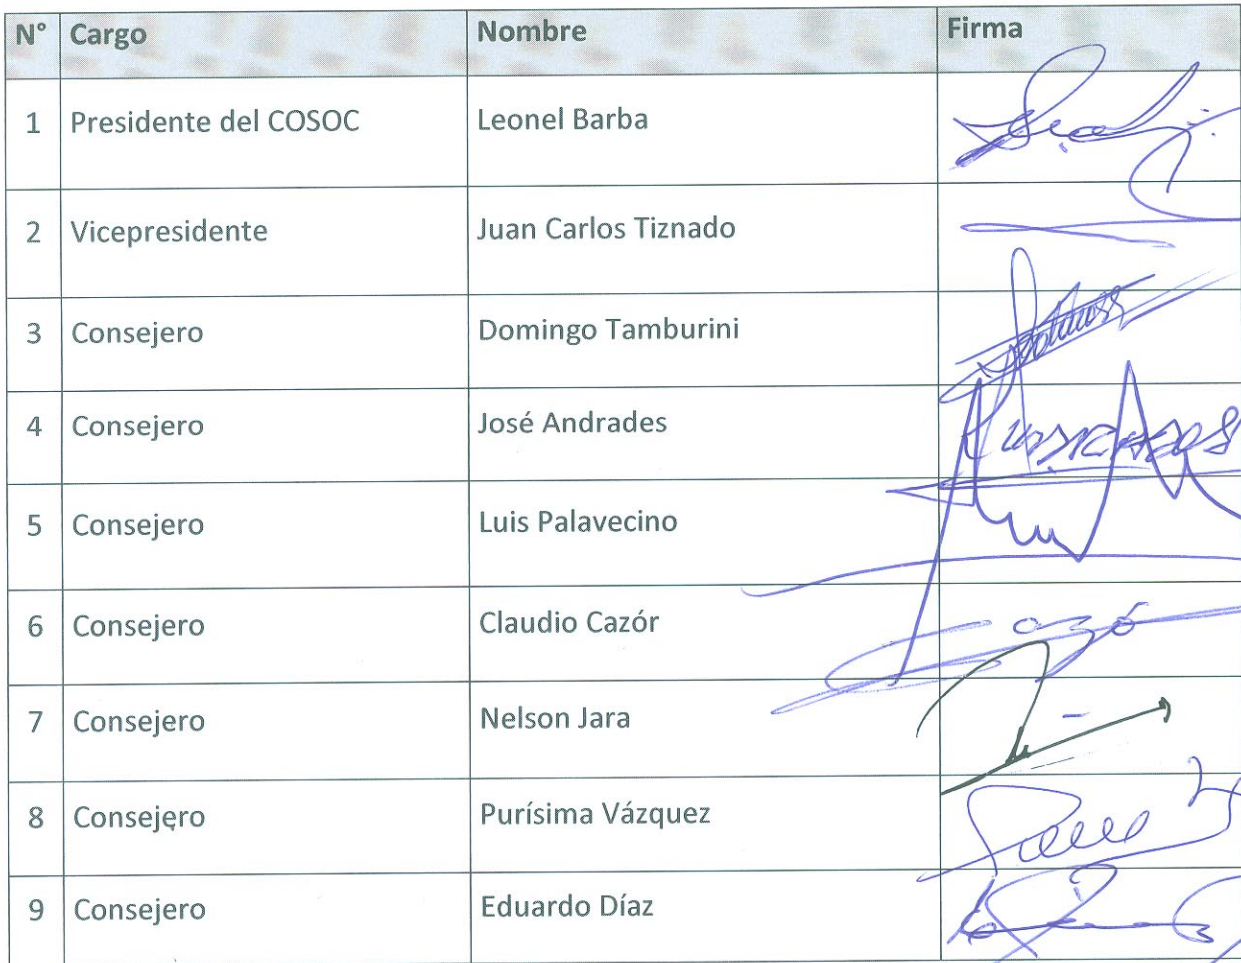 N° Cargo Nombre Firma
1 Presidente del COSOC Leonel Barba
2 Vicepresidente Juan Carlos Tiznado
3 Consejero Domingo Tamburini
4 Consejero José Andrades
5 Consejero Luis Palavecino
6 Consejero Claudio Cazór
7 Consejero Nelson Jara
8 Consejero Purísima Vázquez
9 Consejero Eduardo Díaz